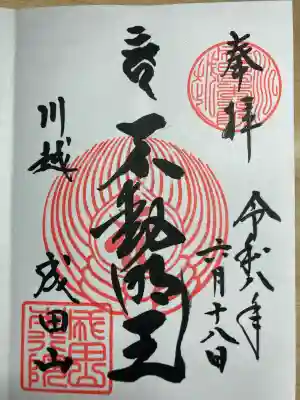 奉拝
令和八年
六月十八日
不動明王
川越
成田山
成田山
本行院